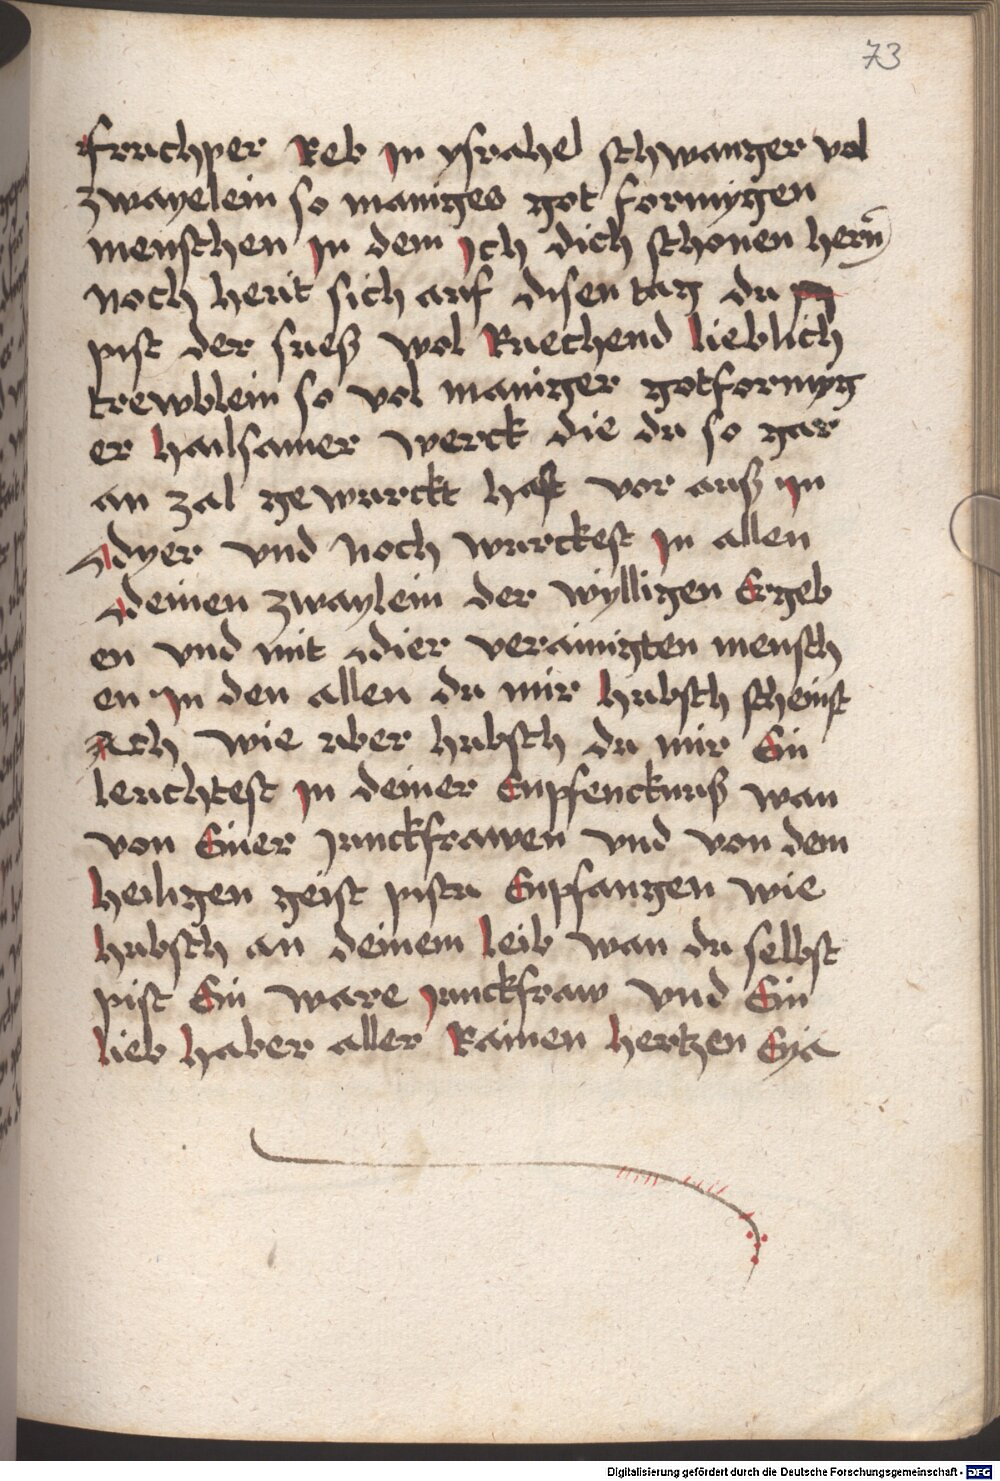 73
fruchper Reb in ysrahel schwanger vol
zwayelein so maniges got formygen
menschen in dem ich dich schonen hern̄
noch heut sich auf disen tag du
pist der sues wol Ruechend lieblich
trewblein so vol maniger gotformyg
er hailsamer werck die du so gar
an zal gewurckt hast vor auß in
Adyer vnd noch wurckest in allen
deinen zwaylein der wylligen Ergeb
en vnd mit dier verainigten mensch
en in den allen du mir hubsch scheinst
Ach wie aber hubsch du mir Ein
leuchtest in deiner Enpfencknuß wan
von Einer junckfrawen vnd von dem
heiligen geist pistu Enpfangen wie
hubsch an deinem leib wan du selbst
pist Ein ware junckfraw vnd Ein
lieb haber aller Rainen hertzen Eya
Digitalisierung gefördert durch die Deutsche Forschungsgemeinschaft - DFG